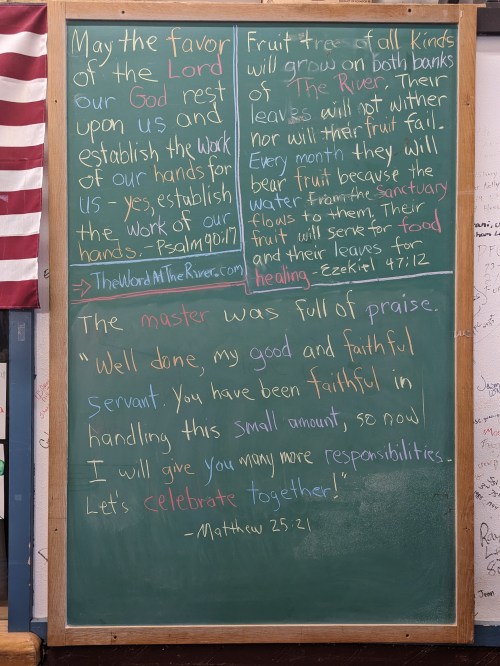 May the favor
of the Lord
our God rest
upon us and
establish the work
of our hands for
us - yes, establish
the work of our
hands. - Psalm 90:17
Fruit trees of all kinds
will grow on both banks
of The River. Their
leaves will not wither
nor will their fruit fail.
Every month they will
bear fruit because the
water from the Sanctuary
flows to them. Their
fruit will serve for food
and their leaves for
healing - Ezekiel 47:12
The master was full of praise.
"Well done, my good and faithful
servant. You have been faithful in
handling this small amount, so now
I will give you many more responsibilities.
Let's celebrate together!"
- Matthew 25:21